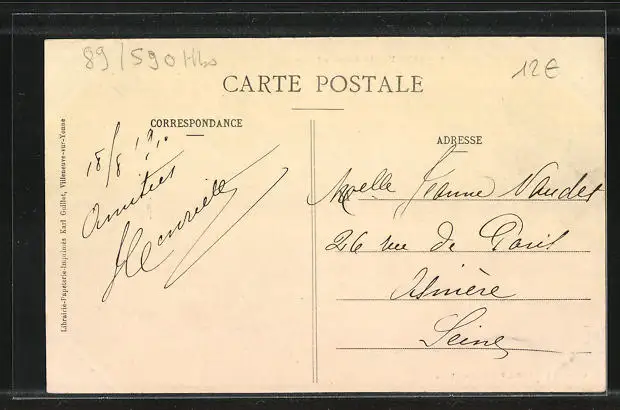 89/590 Hbs
12€
CARTE POSTALE
CORRESPONDANCE
ADRESSE
Librairie-Papeterie-Imprimés Karl Guillot, Villeneuve-sur-Yonne
18/8 1910
Amitiés
Henriette
Melle Jeanne Naudet
26 rue de Paris
Asnière
Seine